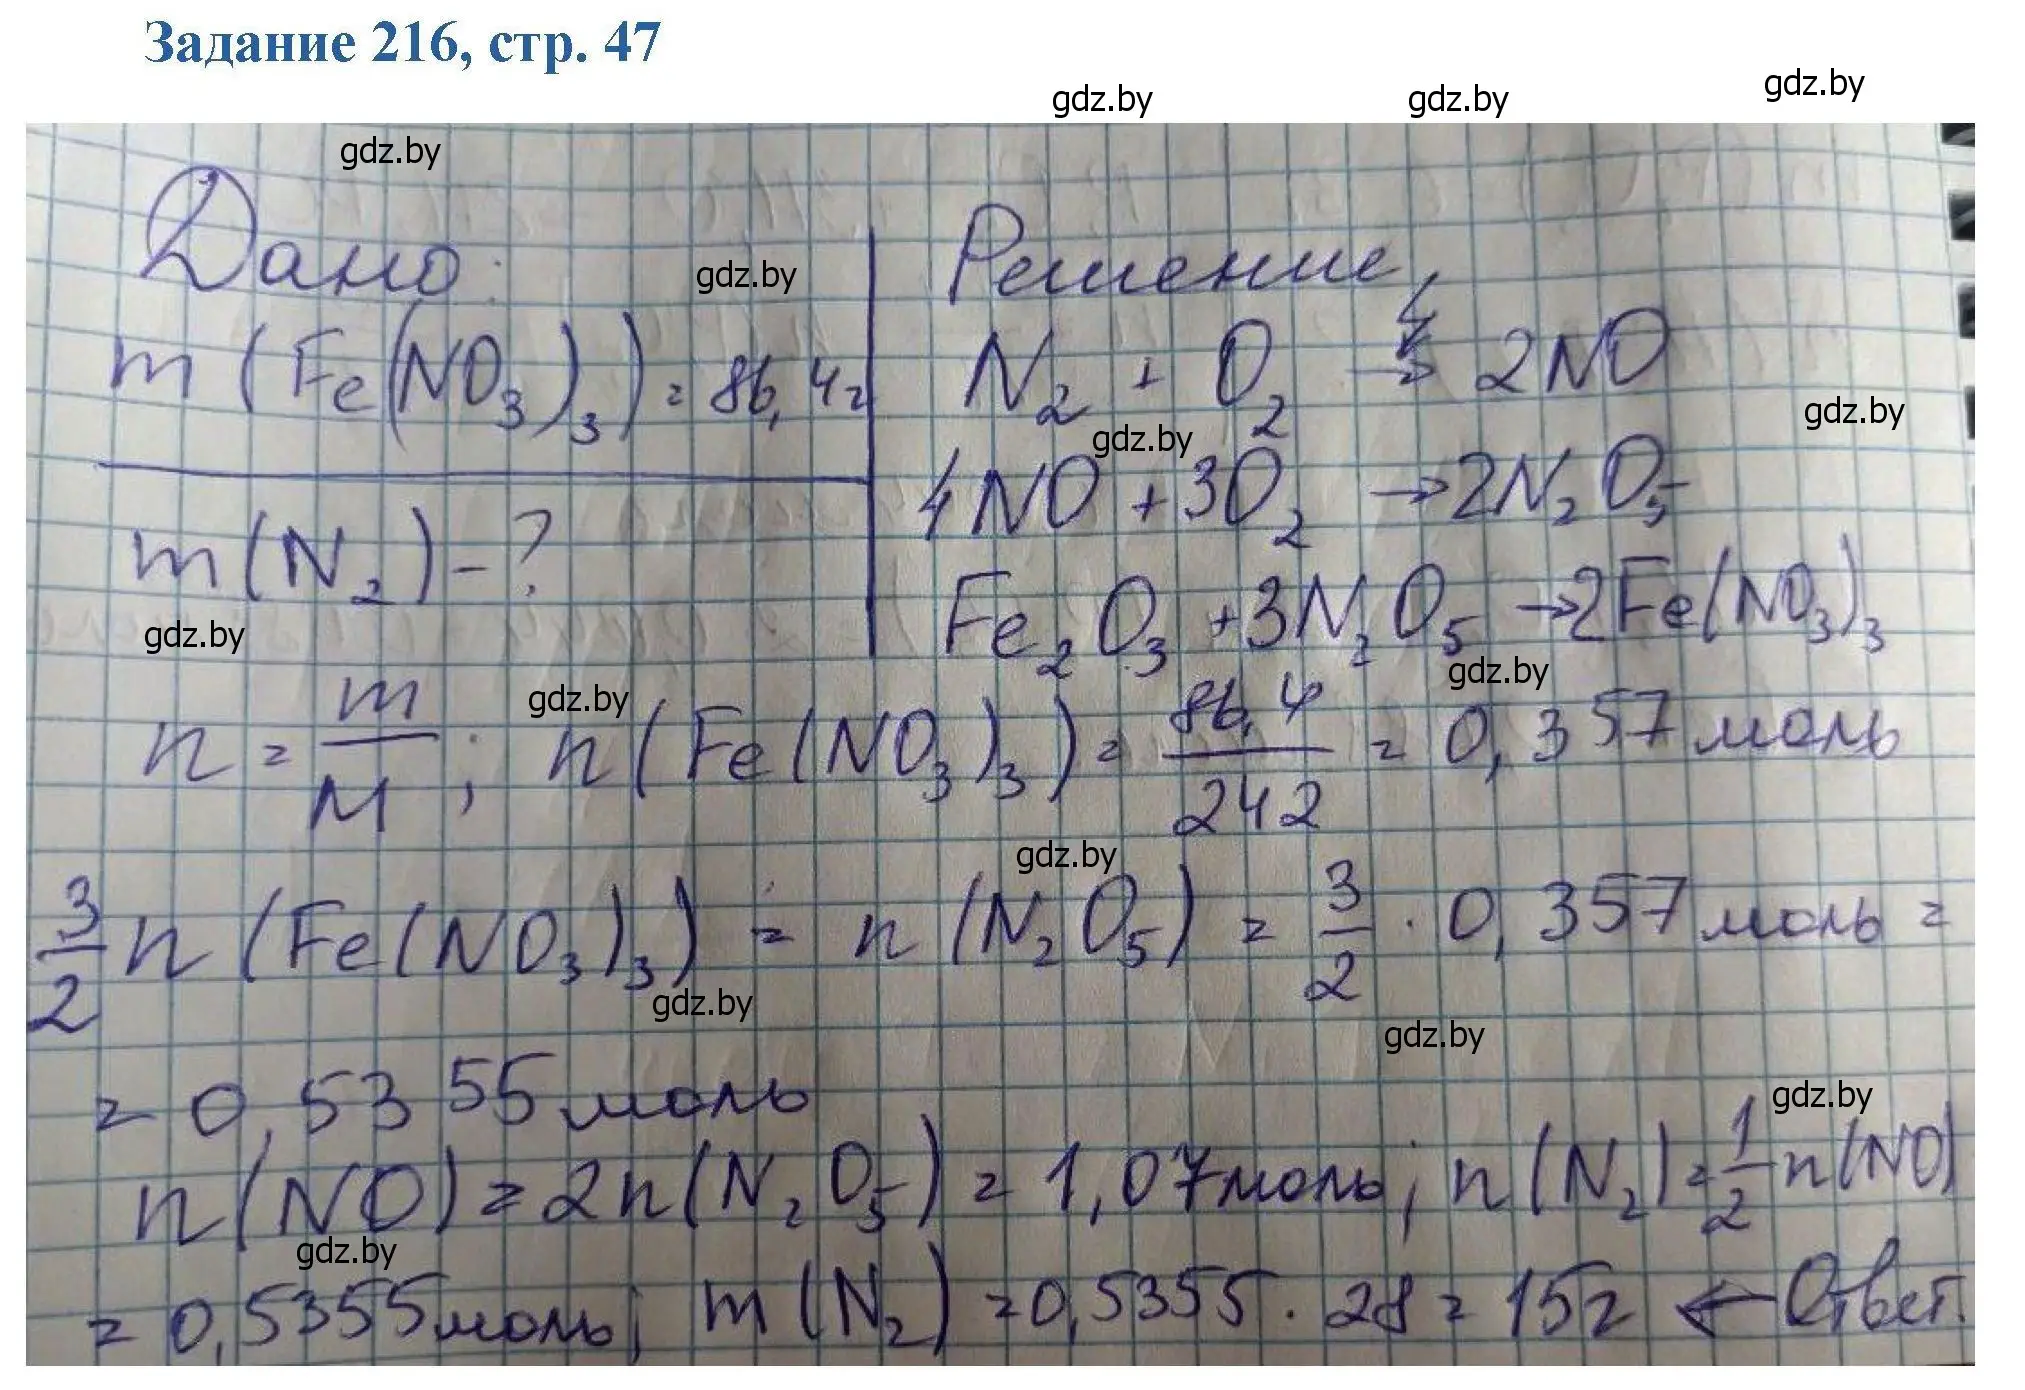 Задание 216, стр. 47
gdz.by gdz.by gdz.by
gdz.by
Дано: gdz.by Решение
m(Fe(NO₃)₃) = 86,4г N₂ + O₂ → 2NO
gdz.by gdz.by
4NO + 3O₂ → 2N₂O₅
m(N₂) - ?
gdz.by Fe₂O₃ + 3N₂O₅ → 2Fe(NO₃)₃
gdz.by gdz.by
n = m/M; n(Fe(NO₃)₃) = 86,4/242 = 0,357 моль
gdz.by
3/2 n(Fe(NO₃)₃) = n(N₂O₅) = 3/2 · 0,357 моль =
gdz.by gdz.by
= 0,5355 моль
gdz.by
n(NO) = 2n(N₂O₅) = 1,07 моль; n(N₂) = 1/2 n(NO)
gdz.by
= 0,5355 моль; m(N₂) = 0,5355 · 28 = 15г ← Ответ.